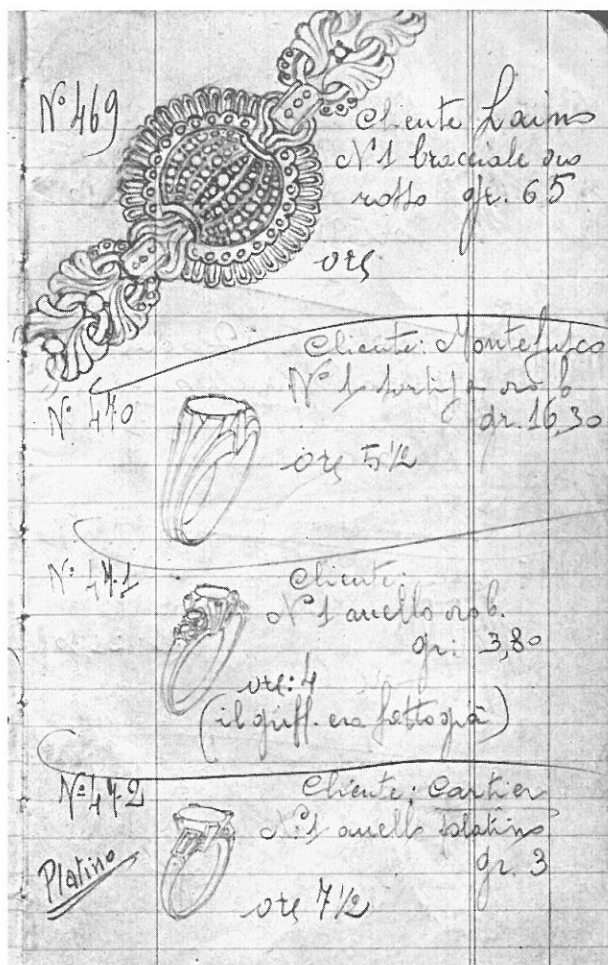 Nº 469
Cliente Laino
Nº 1 bracciale oro
rosso gr. 65
ore
Cliente: Montefusco
Nº 470
Nº 1 oro b
gr. 16,30
ore 5 1/2
Nº 471
Cliente:
Nº 1 anello oro b.
gr: 3,80
ore: 4
(il griff. era fatto già)
Nº 472
Cliente: Cartier
Nº 1 anello platino
gr. 3
Platino
ore 7 1/2